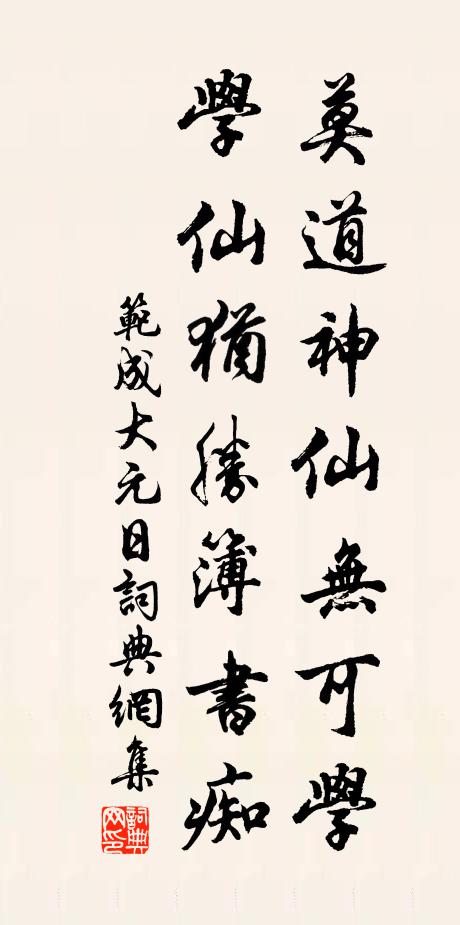 莫道神仙無可學
學仙猶勝簿書痴
範成大元日詞典網集
詞典網印